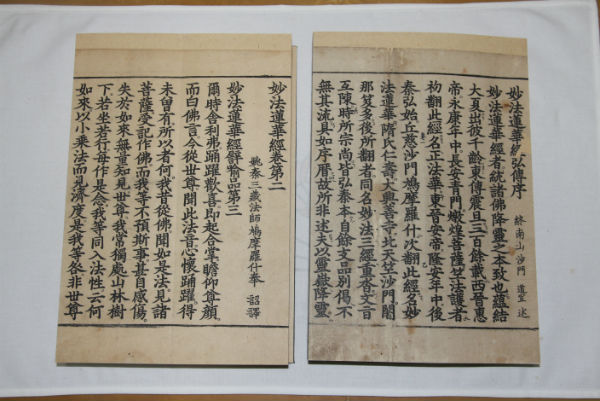 妙法蓮華經弘傳序
終南山 沙門 道宣 述
妙法蓮華經者統諸佛降靈之本致也蘊結
大夏出彼千齡東傳震旦三百餘載西晉惠
帝永康年中長安青門燉煌菩薩竺法護者
初翻此經名正法華東晉安帝隆安年中後
秦弘始丘慈沙門鳩摩羅什次翻此經名妙
法蓮華隋氏仁壽大興善寺北天竺沙門闍
那笈多後所翻者同名妙法三經重沓文旨
互陳時所宗尚皆弘秦本自餘支品別偈不
無其流具如序曆故所非述夫以靈嶽降靈
妙法蓮華經卷第二
姚秦三藏法師鳩摩羅什奉 詔譯
妙法蓮華經譬喻品第三
爾時舍利弗踊躍歡喜即起合掌瞻仰尊顏
而白佛言今從世尊聞此法音心懷踊躍得
未曾有所以者何我昔從佛聞如是法見諸
菩薩受記作佛而我等不預斯事甚自感傷
失於如來無量知見世尊我常獨處山林樹
下若坐若行每作是念我等同入法性云何
如來以小乘法而見濟度是我等咎非世尊